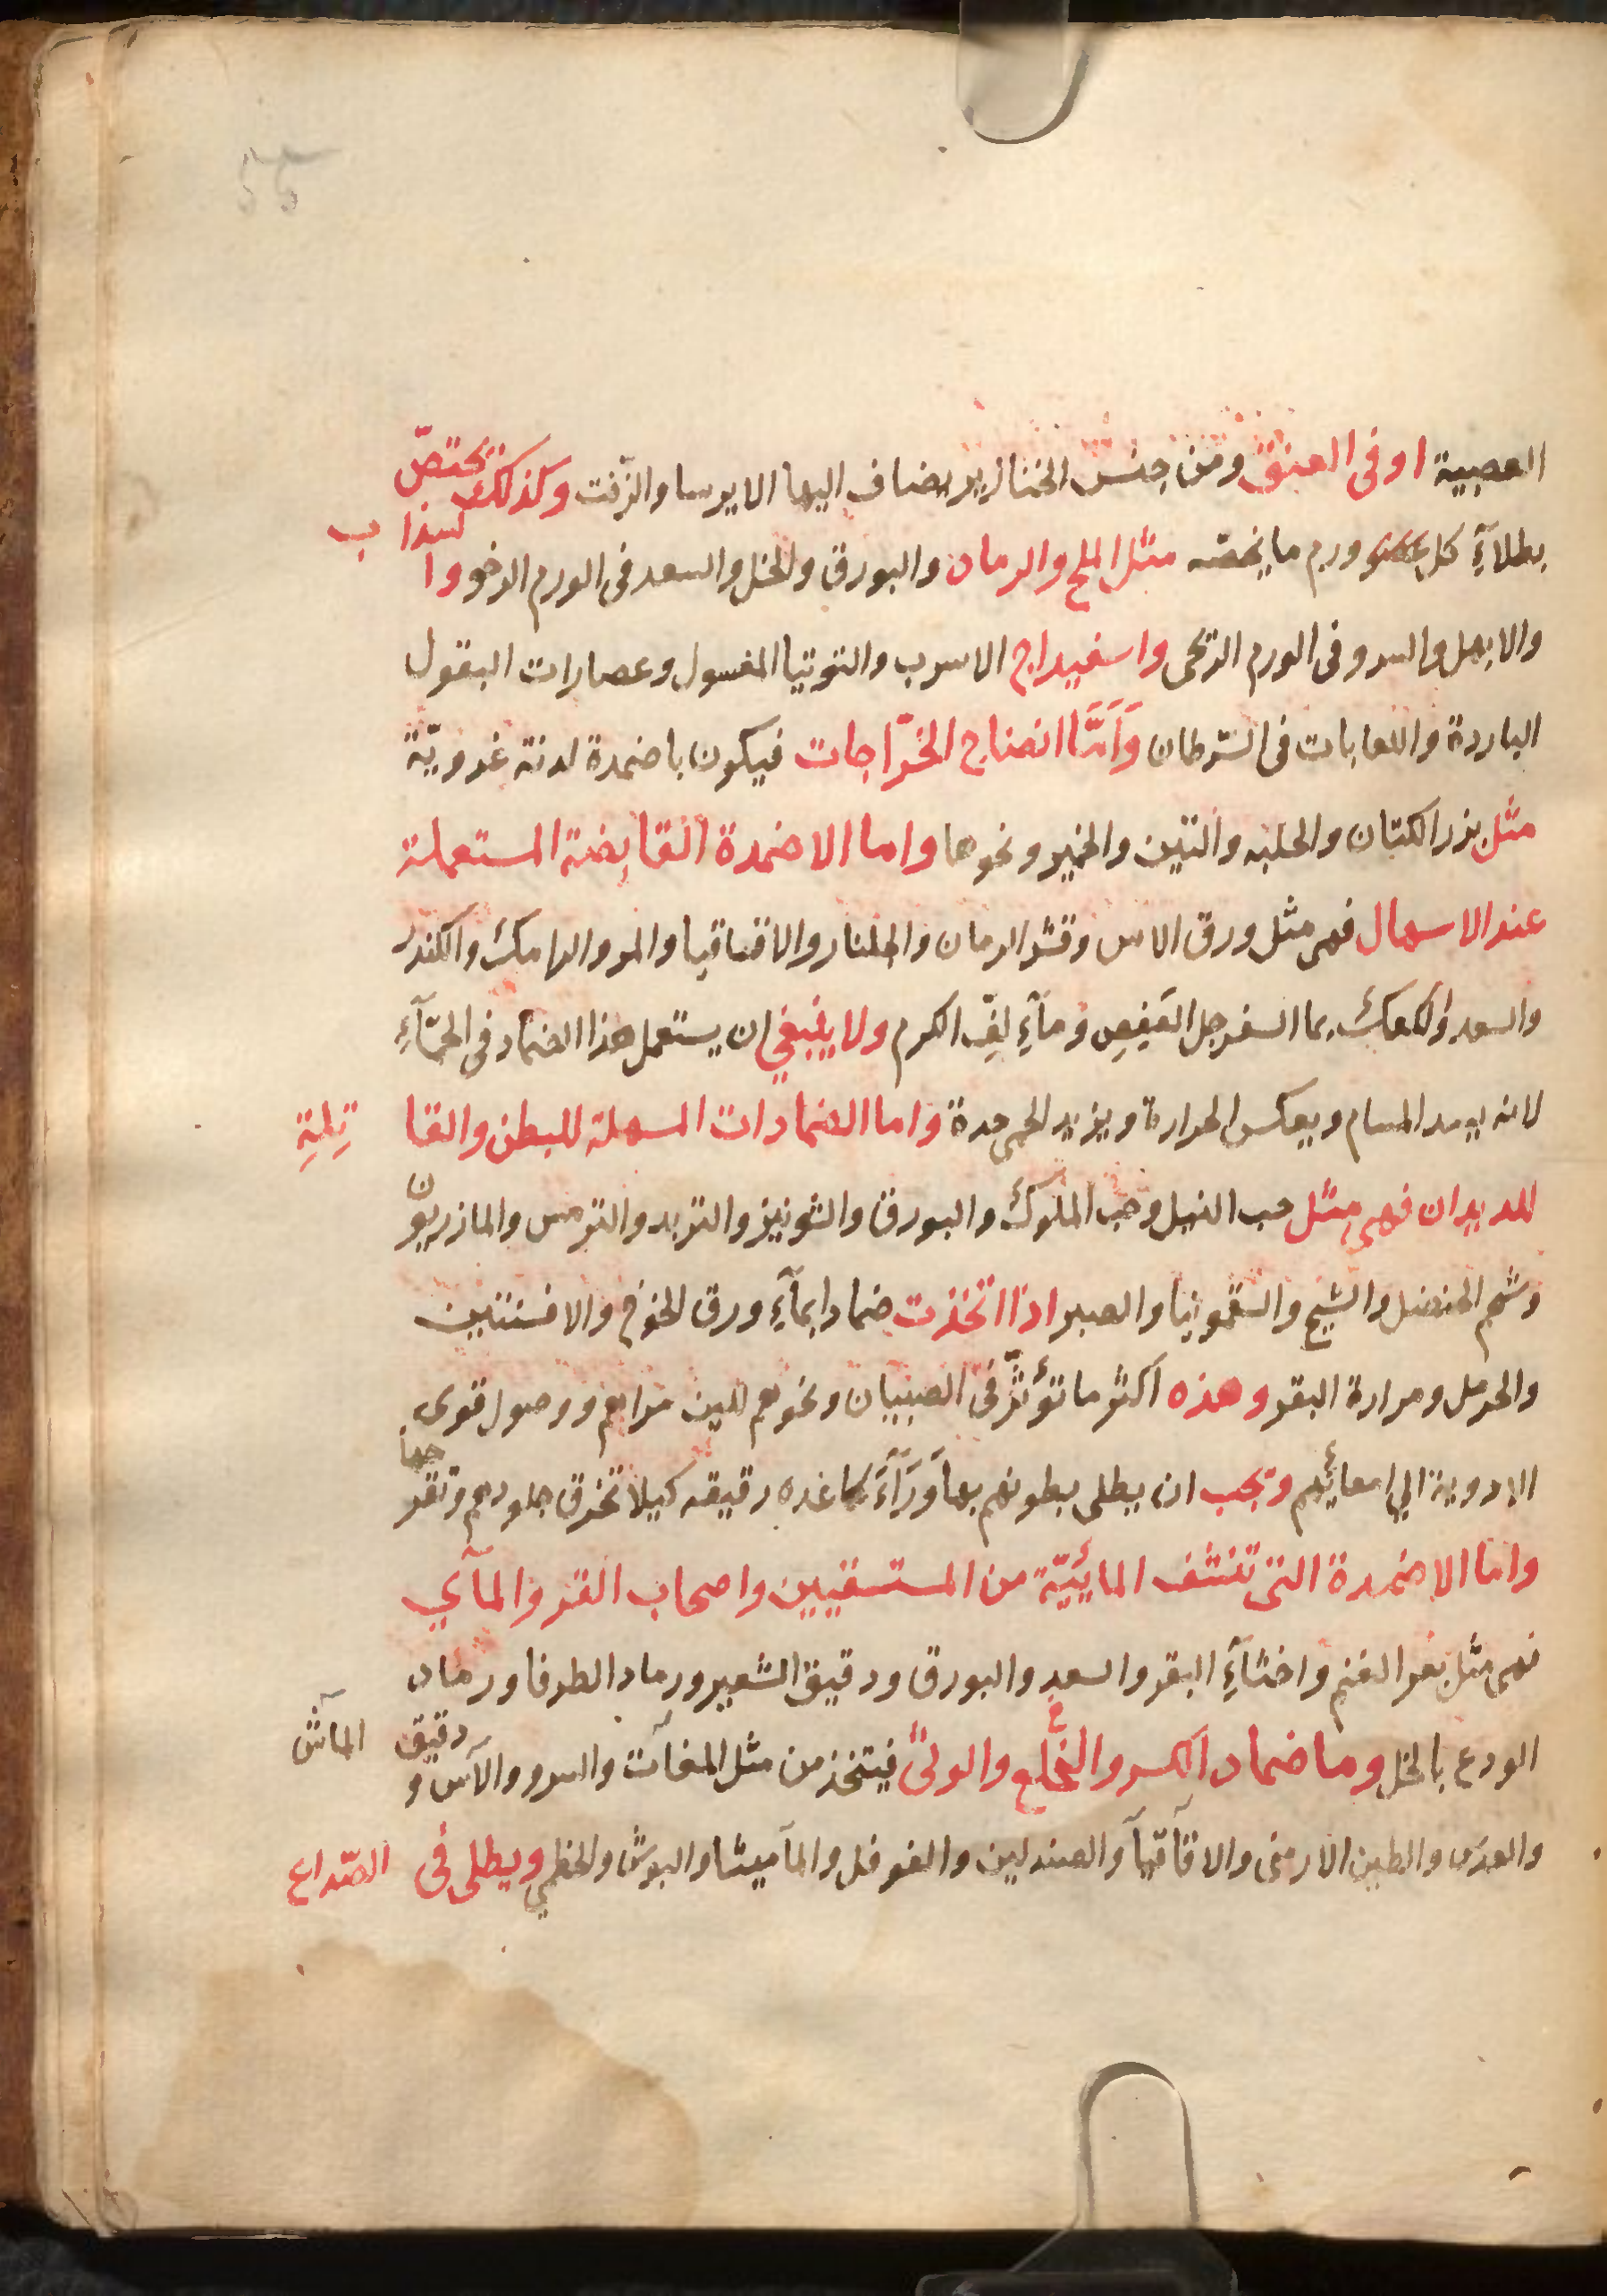 العصبية او فى العنق ومن جنس الخنازير يضاف اليها الايرسا والزفت وكذلك يختصّ
بطلآءِ كل ورم ما يخصّه مثل الملح والرماد والبورق والخل والسعد فى الورم الرخو والسذاب
والابهل والسرو فى الورم الريحى واسفيداج الاسرب والتوتيا المغسول وعصارات البقول
الباردة واللعابات فى السّرطان وَاَمَّا انضاج الخرّاجات فيكون باضمدة لدنة غرويّة
مثل بزر الكتان والحلبه والتين والخمير ونحوها واما الاضمدة القابضة المستعملة
عند الاسهال فهى مثل ورق الاس وقشر الرمان والجلنار والاقاقيا والمر والرامك والكندر
والسعد والكعك بما السفرجل العَفِصِ ومآءِ لفّ الكرم ولا ينبغي ان يستعمل هذا الضماد في الحمّآءِ
لانه يسد المسام ويعكس الحرارة ويزيد الحمى حدة واما الضمادات المسهلة للبطن والقاتِلةِ
للديدان فهى مثل حب النيل وحب الملوك والبورق والشونيز والتربد والترمس والمازريون
وشحم الحنضل والشيح والسقمونيا والصبر اذا اتخذت ضمادا بمآءِ ورق الخوخ والافسنتين
والحرمل ومرارة البقر وهذه اكثر ما تؤثّر فى الصبيان ونحوهم للين مراقهم ووصول قوى
الادوية الي امعائهم وتجب ان يطلى بطونهم بها وَرَآءَ كاغده رقيقه كيلا تخرق جلودهم وتقرحها
واما الاضمدة التى تنشف المائيّة من المستسقيين واصحاب القر والمآي
فهى مثل بعر الغنم واخثآءِ البقر والسعد والبورق ودقيق الشعير ورماد الطرفا ورماد
الودع بالخل وما ضماد الكسر والخَلع والوثى فيتخذ من مثل المغاث والسرو والآس ودقيق الماش
والعدس والطين الارمنى والاقاقيا والصندلين والفوفل والماميثا والبوش والخطمي ويطلى فى الصّداع